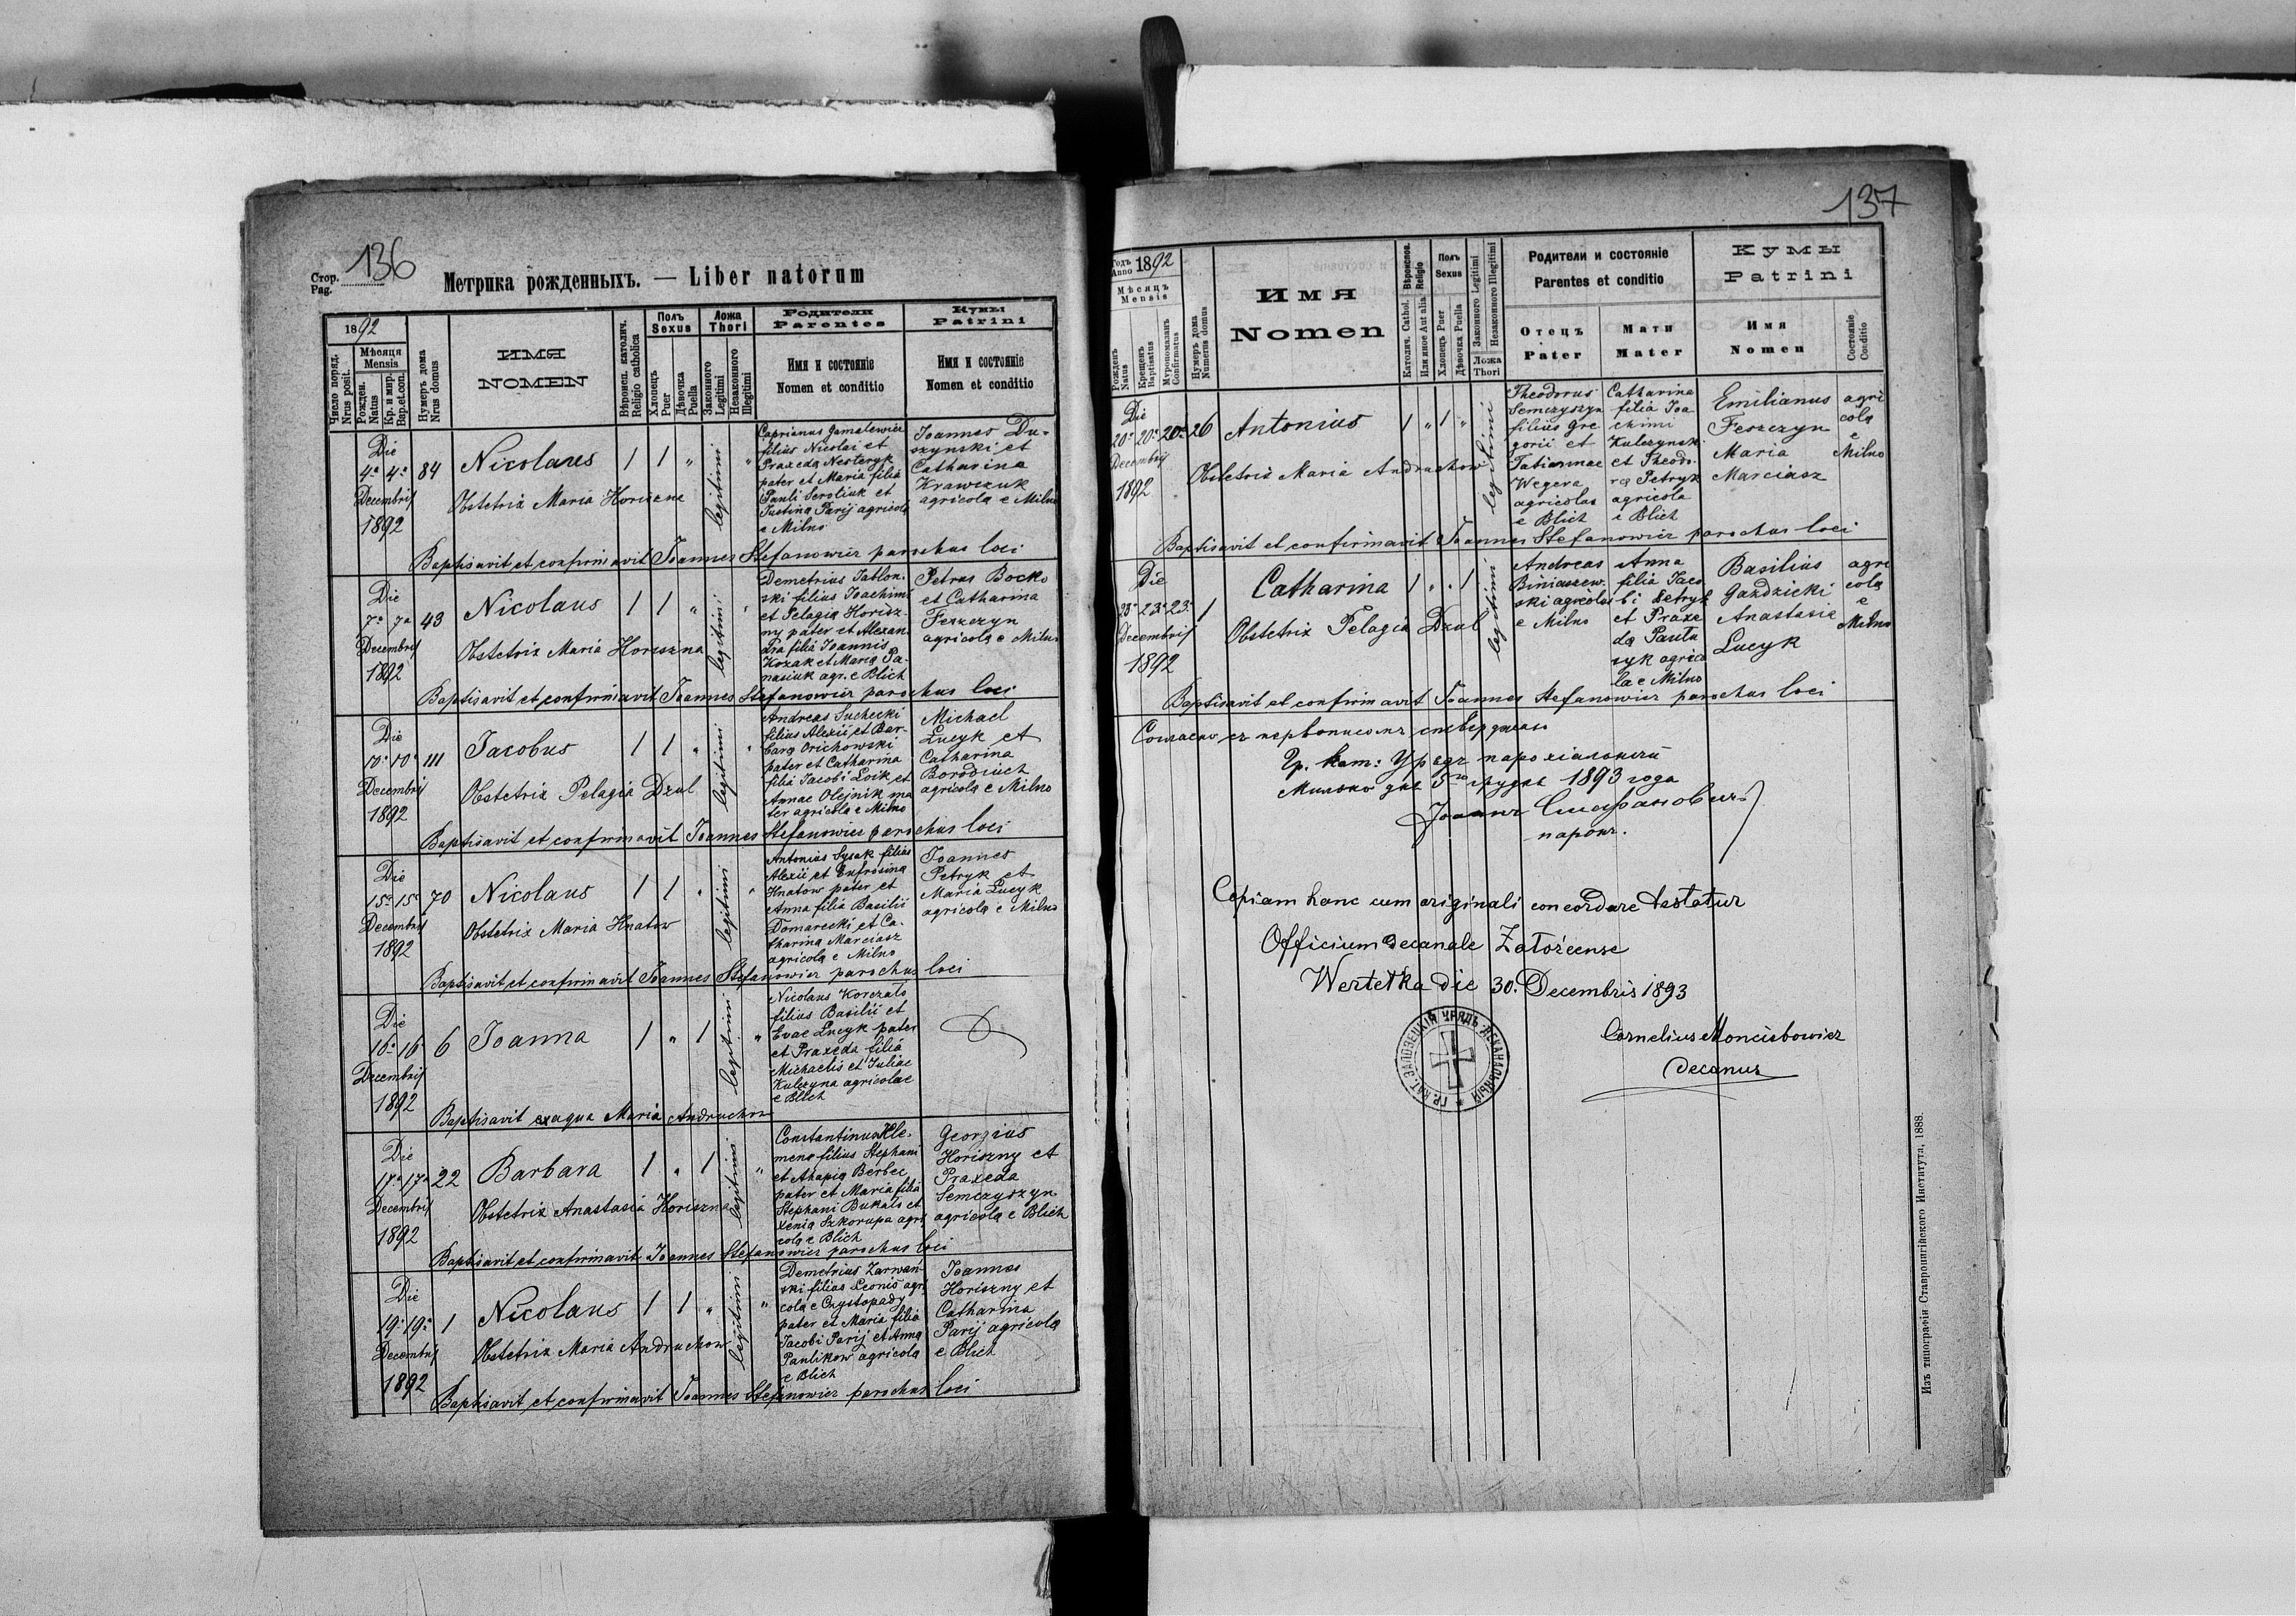 Стор.
Pag.
136
Метрика рожденныхъ. — Liber natorum
1892
Число поряд.
Nrus posit.
Мѣсяця
Mensis
Рожден.
Natus
Кр. и мир.
Bap.et.con.
Нумеръ дома
Nrus domus
ИМЯ
NOMEN
Вѣроисп. католич.
Religio catholica
Полъ
Sexus
Хлопецъ
Puer
Дѣвочка
Puella
Ложа
Thori
Законного
Legitimi
Незаконного
Illegitimi
Родители
Parentes
Имя и состоянiе
Nomen et conditio
Кумы
Patrini
Имя и состоянiе
Nomen et conditio
Die
4a 4a 84 Nicolaus 1 1 " legitimi "
Decembris
1892
Obstetrix Maria Horiszna
Caprianus Gamalewicz
filius Nicolai et
Praxeda Nesteryk
pater et Maria filia
Pauli Serotiuk et
Justina Parij agricola
e Milno
Joannes Du-
szynski et
Catharina
Krawczuk
agricola e Milno
Baptisavit et confirmavit Joannes Stefanowicz parochus loci
Die
7a 7a 43 Nicolaus 1 1 " legitimi "
Decembris
1892
Obstetrix Maria Horiszna
Demetrius Jablon-
ski filius Joachimi
et Pelagia Horisz-
ny pater et Alexan-
dra filia Joannis
Kozak et Maria Pa-
nasiuk agr. e Blich
Petrus Bocko
et Catharina
Feszczyn
agricola e Milno
Baptisavit et confirmavit Joannes Stefanowicz parochus loci
Die
10a 10a 111 Jacobus 1 1 " legitimi "
Decembris
1892
Obstetrix Pelagia Dzul
Andreas Suchecki
filius Alexii et Bar-
bara Orichowski
pater et Catharina
filia Jacobi Loik et
Annae Olejnik ma
ter agricola e Milno
Michael
Lucyk et
Catharina
Borodiuch
agricola e Milno
Baptisavit et confirmavit Joannes Stefanowicz parochus loci
Die
15a 15a 70 Nicolaus 1 1 " legitimi "
Decembris
1892
Obstetrix Maria Hnatow
Antonius Sysak filius
Alexii et Eufrosina
Hnatow pater et
Anna filia Basilii
Domarecki et Ca-
tharina Marciasz
agricola e Milno
Joannes
Petryk et
Maria Lucyk
agricola e Milno
Baptisavit et confirmavit Joannes Stefanowicz parochus loci
Die
16a 16 6 Joanna 1 " 1 legitimi "
Decembris
1892
Nicolaus Korczato
filius Basilii et
Evae Lucyk pater
et Praxeda filia
Michaelis et Juliae
Kulczyna agricolae
e Blich
Baptisavit ex aqua Maria Andruchow
Die
17a 17a 22 Barbara 1 " 1 legitimi "
Decembris
1892
Obstetrix Anastasia Horiszna
Constantinus Kle-
mens filius Stephani
et Ahapia Berbec
pater et Maria filia
Stephani Bukalo et
Xenia Szkorupa agri
cola e Blich
Georgius
Horiszny et
Praxeda
Semczyszyn
agricola e Blich
Baptisavit et confirmavit Joannes Stefanowicz parochus loci
Die
19a 19a 1 Nicolaus 1 1 " legitimi "
Decembris
1892
Obstetrix Maria Andruchow
Demetrius Zarwań-
ski filius Leonis agri
cola e Czystopady
pater et Maria filia
Jacobi Parij et Anna
Paulikow agricola
e Blich
Joannes
Horiszny et
Catharina
Parij agricola
e Blich
Baptisavit et confirmavit Joannes Stefanowicz parochus loci
137
Годъ
Anno 1892
Мѣсяцъ
Mensis
Рожденъ
Natus
Крещенъ
Baptisatus
Муропомазанъ
Confirmatus
Нумеръ дома
Numerus domus
Имя
Nomen
Вѣроиспов.
Religio
Католич. Cathol.
Или иное Aut alia
Полъ
Sexus
Хлопецъ Puer
Дѣвочка Puella
Законного Legitimi
Незаконного Illegitimi
Ложа
Thori
Родители и состоянiе
Parentes et conditio
Отецъ
Pater
Мати
Mater
Кумы
Patrini
Имя
Nomen
Состоянiе
Conditio
Die
20a 20a 20a 26 Antonius 1 " 1 " legitimi
Decembris
1892
Obstetrix Maria Andruchow
Theodorus
Semczyszyn
filius Gre
gorii et
Tatiannae
Wegera
agricolae
e Blich
Catharina
filia Joa
chimi
Kulczynski
et Theodo-
ra Petryk
agricola
e Blich
Emilianus
Feszczyn
Maria
Marciasz
agri
cola
e
Milno
Baptisavit et confirmavit Joannes Stefanowicz parochus loci
Die
23a 23a 23a 1 Catharina 1 " " 1 legitimi
Decembris
1892
Obstetrix Pelagia Dzul
Andreas
Biniaszew-
ski agricolae
e Milno
Anna
filia Jaco
bi Petryk
et Praxe
da Pauta
syk agrico
la e Milno
Basilius
Gazdzicki
Anastasia
Lucyk
agri
cola
e
Milno
Baptisavit et confirmavit Joannes Stefanowicz parochus loci
Согласно съ первописомъ стверджаю
Гр. кат: Урядъ парохіальный
Мильно дня 5го грудня 1893 года
Іоаннъ Стефановичъ
парохъ.
Copiam hanc cum originali concordare testatur
Officium decanale Załoźcense
Wertełka die 30. Decembris 1893
Cornelius Moncibowicz
decanus
ГР. КАТ. ЗАЛОЗЕЦКІЙ УРЯДЪ ДЕКАНАЛЬНЫЙ
Изъ типографіи Ставропигійского Института, 1888.